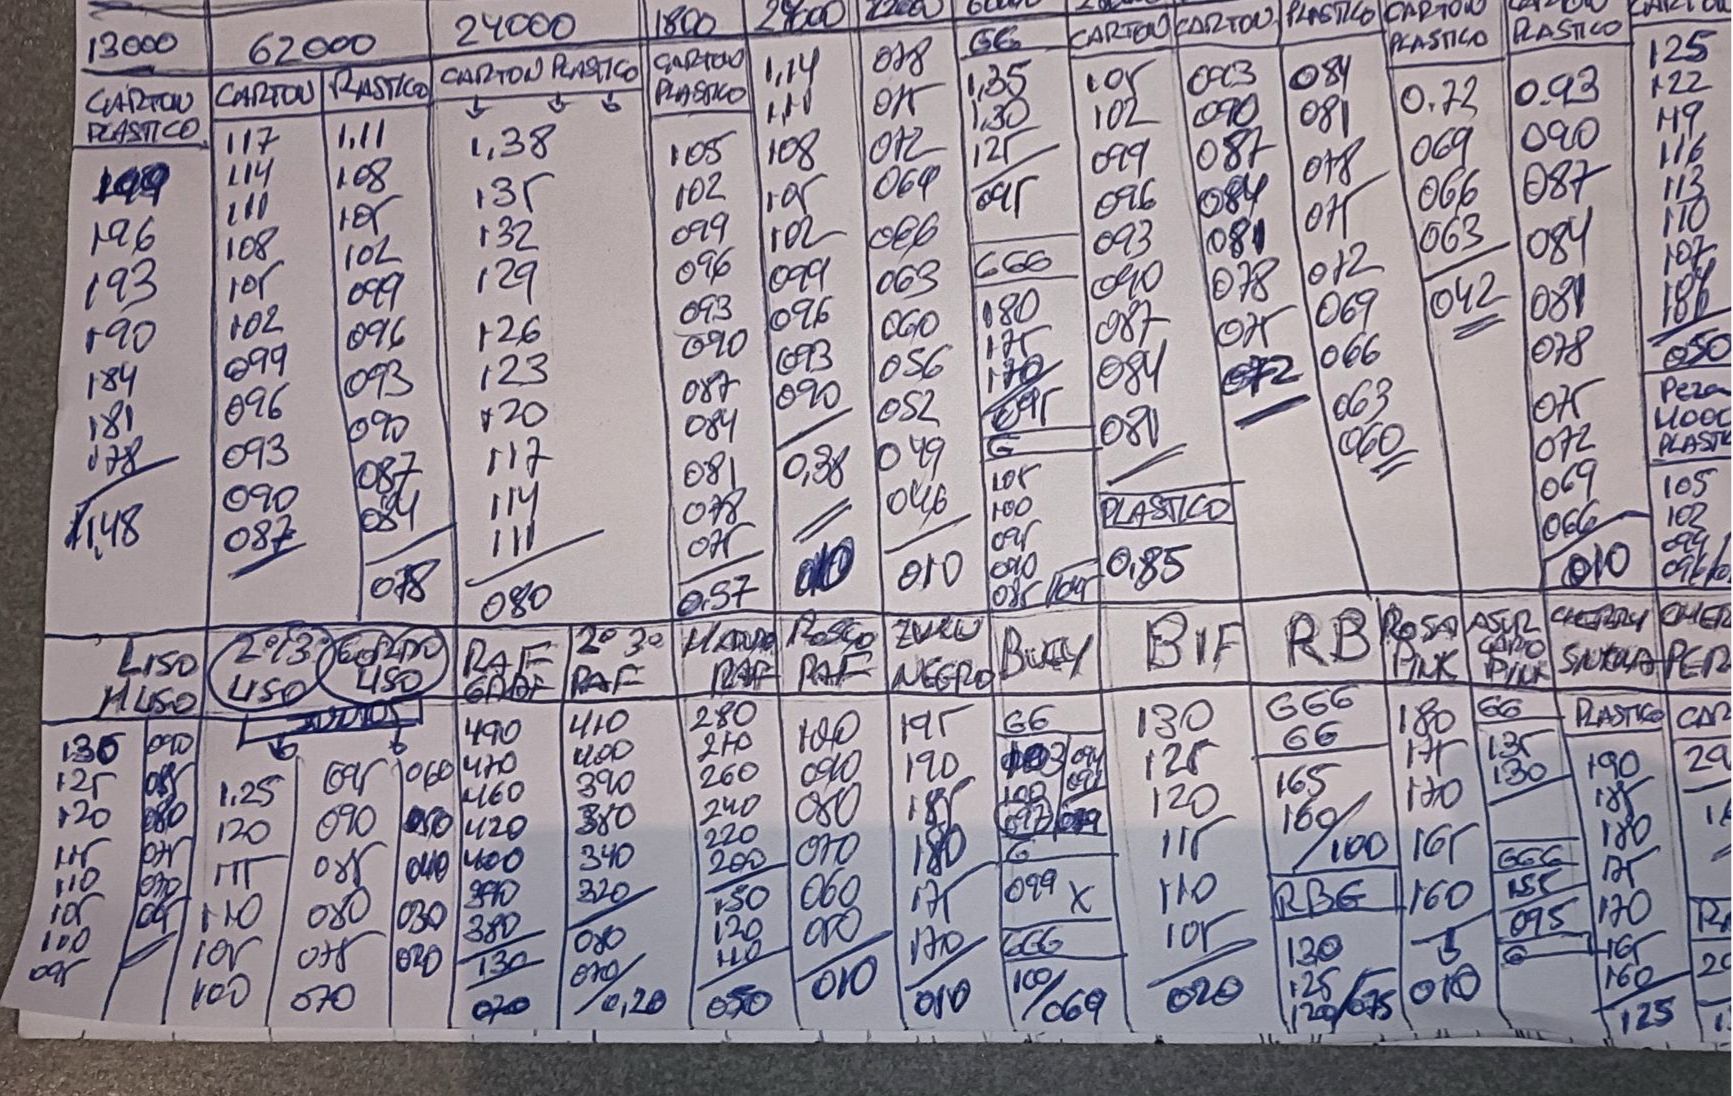 13000 62000 24000 1800
CARTON PLASTICO
199
196
193
190
184
181
178
1,48
CARTON
117
114
111
108
105
102
099
096
093
090
087
PLASTICO
1,11
108
105
102
099
096
093
090
087
084
078
CARTON PLASTICO
1,38
135
132
129
126
123
120
117
114
111
080
CARTON
PLASTICO
105
102
099
096
093
090
087
084
081
078
075
0,57
1,14
1,11
108
105
102
099
096
093
090
0,38
010
078
075
072
069
066
063
060
056
052
049
046
010
GG
1,35
1,30
125
095
GGG
180
175
170
095
G
105
100
095
090
CARTON
105
102
099
096
093
090
087
084
081
PLASTICO
0,85
CARTON
093
090
087
084
081
078
075
072
PLASTICO
084
081
078
075
072
069
066
063
060
CARTON
PLASTICO
0.72
069
066
063
042
PLASTICO
0.93
090
087
084
081
078
075
072
069
066
010
125
122
119
116
113
110
107
104
101
050
PLASTI
105
102
099
LISO
2º/3º
LISO
GORDO
LISO
RAF
2º 3º
RAF
RAF
RAF
NEGRO
BIF
RB
ROSA
PINK
PINK
CHERRY
PER
135
125
120
115
110
105
100
095
090
085
080
075
070
065
1,25
120
115
110
105
100
095
090
085
080
075
070
060
050
040
030
020
490
470
460
420
400
390
380
130
070
410
400
390
380
340
320
080
070/0,20
280
270
260
240
220
200
150
120
110
050
100
090
080
070
060
050
010
195
190
185
180
175
170
010
GG
G
099 X
GGG
100/069
130
125
120
115
110
105
020
GGG
GG
165
160/100
RBG
130
125
120/075
180
175
170
165
160
010
GG
135
130
GGG
155
095
G
PLASTICO
190
185
180
175
170
165
160
125